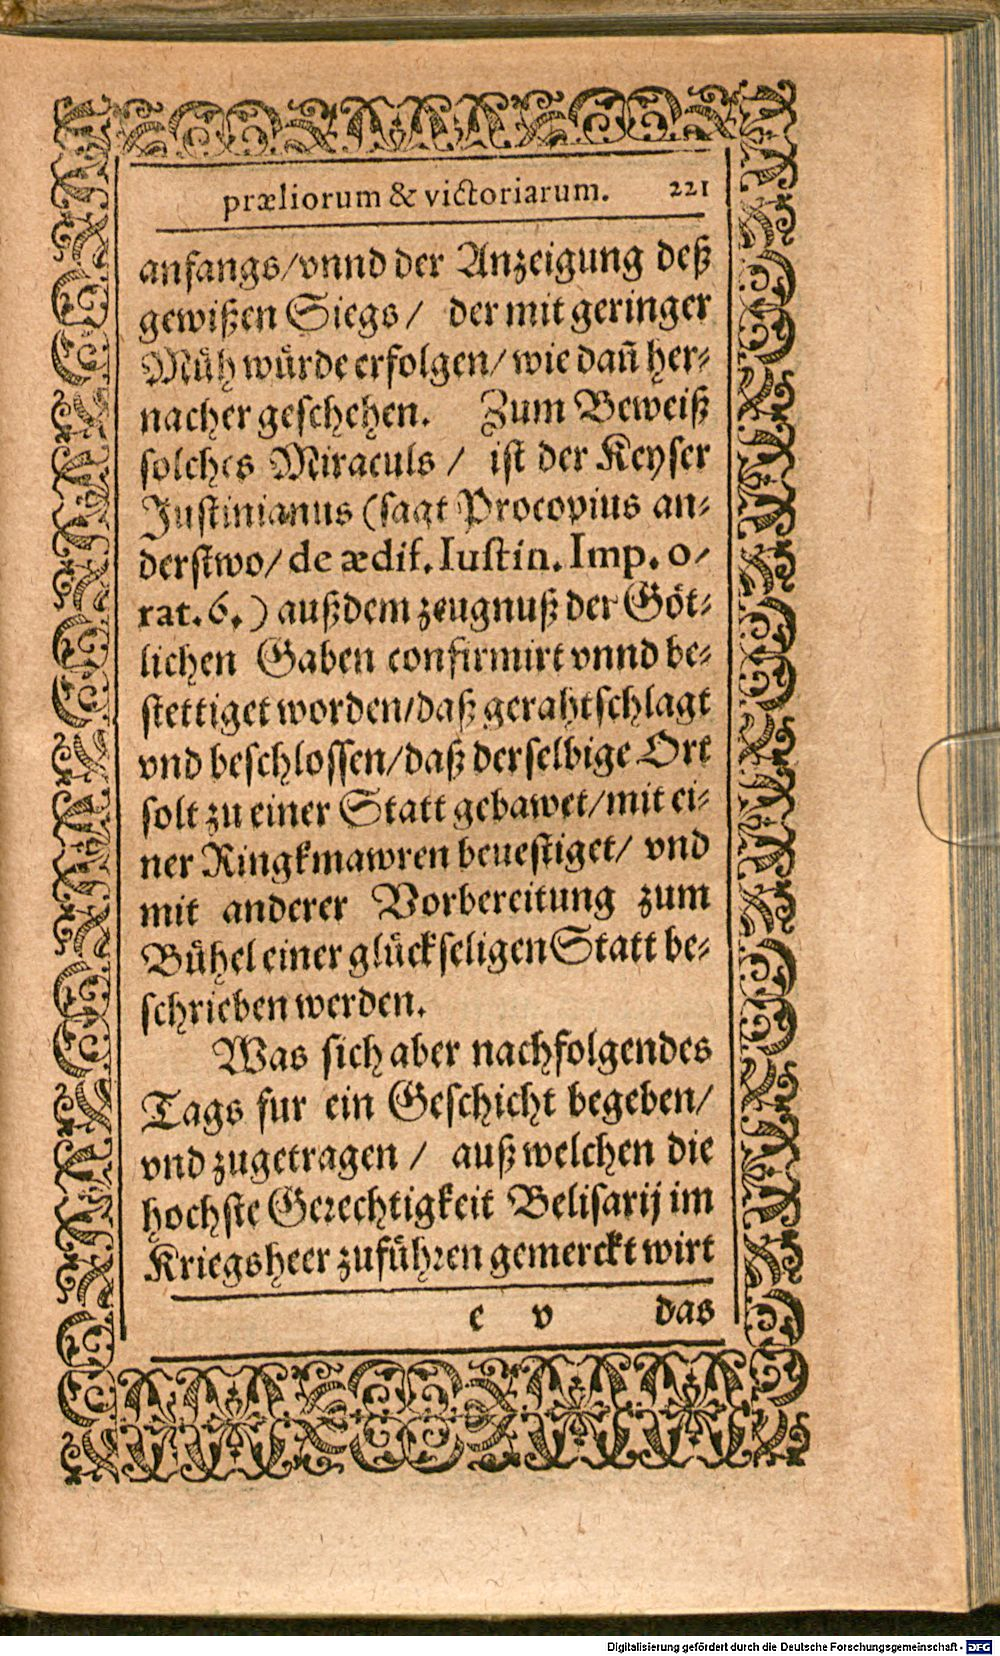 præliorum & victoriarum. 221
anfangs/vnnd der Anzeigung deß
gewißen Siegs/ der mit geringer
Müh würde erfolgen/ wie dañ her-
nacher geschehen. Zum Beweiß
solches Miraculs / ist der Keyser
Justinianus (sagt Procopius an-
derstwo/ de ædif. Iustin. Imp. o-
rat. 6.) auß dem zeugnuß der Göt-
lichen Gaben confirmirt vnnd be-
stettiget worden/daß gerahtschlagt
vnd beschlossen/daß derselbige Ort
solt zu einer Statt gebawet/mit ei-
ner Ringkmawren beuestiget/ vnd
mit anderer Vorbereitung zum
Bühel einer glückseligen Statt be-
schrieben werden.
Was sich aber nachfolgendes
Tags fur ein Geschicht begeben/
vnd zugetragen / auß welchen die
hochste Gerechtigkeit Belisarij im
Kriegsheer zuführen gemerckt wirt
e v das
Digitalisierung gefördert durch die Deutsche Forschungsgemeinschaft - DFG